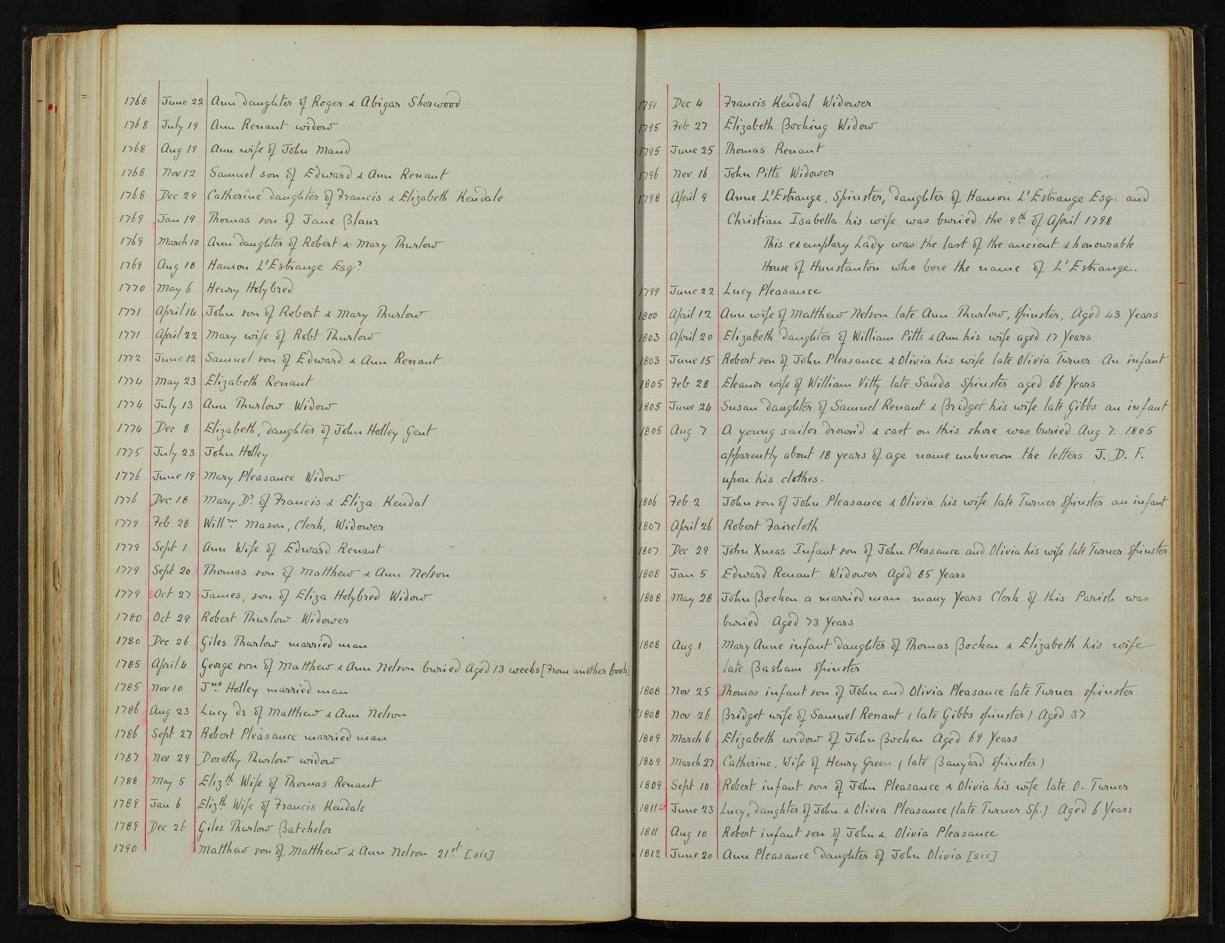 1768 June 22 Ann daughter of Roger & Abigar Sherwood
1768 July 19 Ann Renaut widow
1768 Aug 19 Ann wife of John Mand
1768 Nov 12 Samuel son of Edward & Ann Renaut
1768 Dec 29 Catherine daughter of Francis & Elizabeth Kendale
1769 Jan 19 Thomas son of Jane
1769 March 10 Ann daughter of Robert & Mary Thurlow
1769 Aug 18 Hamon L'Estrange Esqr
1770 May 6 Henry Holybred
1771 April 14 John son of Robert & Mary Thurlow
1771 April 22 Mary wife of Robt Thurlow
1772 June 12 Samuel son of Edward & Ann Renaut
1774 May 23 Elizabeth Renaut
1774 July 13 Ann Thurlow Widow
1774 Dec 8 Elizabeth, daughter of John Holley Gent
1775 July 23 John Holley
1776 June 19 Mary Pleasance Widow
1776 Dec 18 Mary Dr of Francis & Eliza Kendal
1779 Feb 28 Willm Mason, Clerk, Widower
1779 Sept 1 Ann Wife of Edward Renaut
1779 Sept 20 Thomas son of Matthew & Ann Nelson
1779 Oct 27 James, son of Eliza Holybred Widow
1780 Oct 29 Robert Thurlow Widower
1780 Dec 26 Giles Thurlow married man
1785 April 4 George son of Matthew & Ann Nelson buried Aged 13 weeks [From another book]
1785 Nov 10 Jno Holley married man
1786 Aug 23 Lucy dr of Matthew & Ann Nelson
1786 Sept 27 Robert Pleasance married man
1787 Nov 29 Dorothy Thurlow widow
1788 May 5 Elizth Wife of Thomas Renaut
1789 Jan 6 Elizth Wife of Francis Kendale
1789 Dec 26 Giles Thurlow Batchelor
1790 Matthew son of Matthew & Ann Nelson 21st [sic]
1791 Dec 4 Francis Kendal Widower
1795 Feb 27 Elizabeth Bocking Widow
1795 June 25 Thomas Renaut
1796 Nov 16 John Pitts Widower
1798 April 9 Anne L'Estrange, Spinster, daughter of Hamon L'Estrange Esq. and
Christian Isabella his wife was buried the 9th of April 1798
This exemplary Lady was the last of the ancient & honourable
House of Hunstanton who bore the name of L'Estrange.
1799 June 22 Lucy Pleasance
1800 April 12 Ann wife of Matthew Nelson late Ann Thurlow, spinster, Aged 43 Years
1803 April 20 Elizabeth daughter of William Pitts & Ann his wife aged 17 Years
1803 June 15 Robert son of John Pleasance & Olivia his wife late Olivia Turner An infant
1805 Feb 28 Eleanor wife of William Vitty late Sands Spinster aged 66 Years
1805 June 24 Susan daughter of Samuel Renaut & Bridget his wife late Gibbs an infant
1805 Aug 7 A young sailor drownd & cast on this shore was buried Aug 7. 1805
apparently about 18 years of age name unknown the letters J. D. F.
upon his clothes.
1806 Feb 2 John son of John Pleasance & Olivia his wife late Turner spinster an infant
1807 April 26 Robert Faircloth
1807 Dec 29 John Xmas Infant son of John Pleasance and Olivia his wife late Turner spinster
1808 Jan 5 Edward Renaut Widower Aged 85 Years
1808 May 28 John Bocken a married man many Years Clerk of this Parish was
buried Aged 73 Years
1808 Aug 1 Mary Anne infant daughter of Thomas Bocken & Elizabeth his wife
late Basham spinster
1808 Nov 25 Thomas infant son of John and Olivia Pleasance late Turner spinster
1808 Nov 26 Bridget wife of Samuel Renaut (late Gibbs spinster) Aged 37
1809 March 6 Elizabeth widow of John Bocken Aged 69 Years
1809 March 27 Catherine, Wife of Henry Green (late Banyard spinster)
1809 Sept 10 Robert infant son of John Pleasance & Olivia his wife late O. Turner
1811 June 23 Lucy, daughter of John & Olivia Pleasance (late Turner Sp.) Aged 6 Years
1811 Aug 10 Robert infant son of John & Olivia Pleasance
1812 June 20 Ann Pleasance daughter of John Olivia [sic]